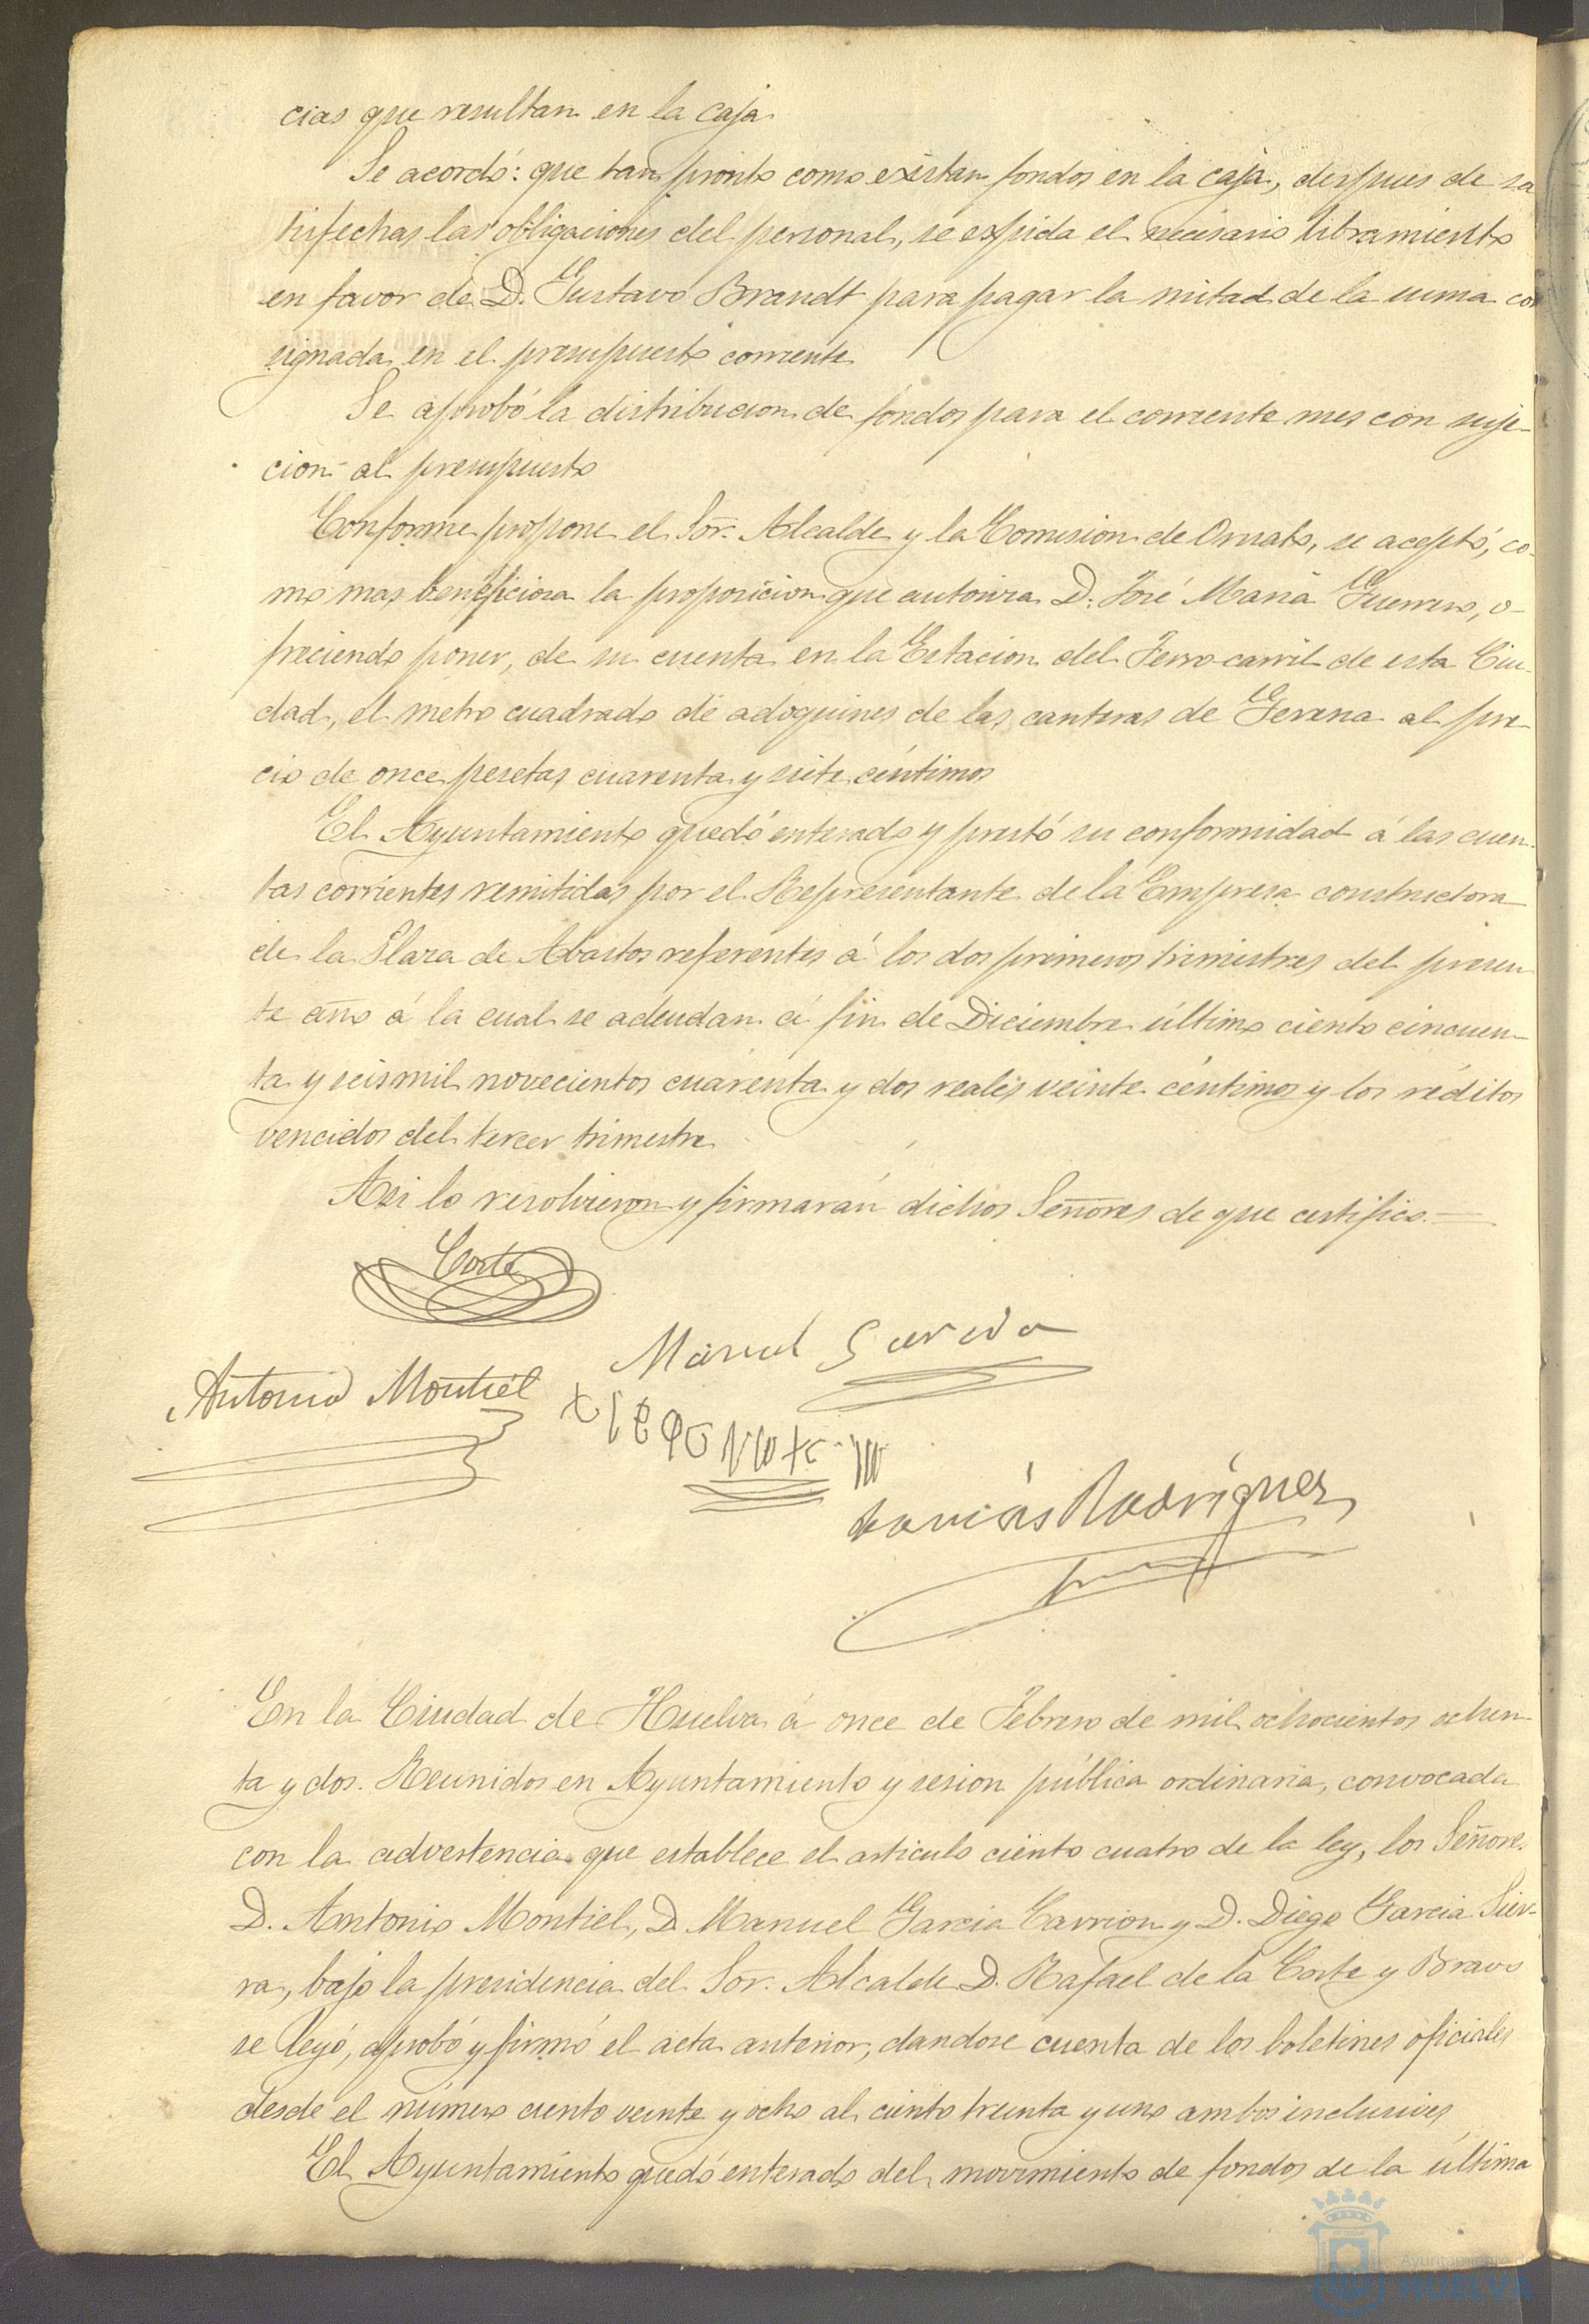 cias que resultan en la caja.
Se acordó: que tan pronto como existan fondos en la caja, despues de sa
tisfechas las obligaciones del personal, se espida el necesario libramiento
en favor de D. Gustavo Brandt para pagar la mitad de la suma con
signada en el presupuesto corriente
Se aprobó la distribucion de fondos para el corriente mes con suje-
cion al presupuesto
Conforme propone el Sor. Alcalde y la Comision de Ornato, se aceptó, co-
mo mas beneficiosa la proposicion que autoriza D. José Maria Guerrero, o-
freciendo poner, de su cuenta en la Estacion del Ferro-carril de esta Ciu-
dad, el metro cuadrado de adoquines de las canteras de Gerena al pre-
cio de once pesetas cuarenta y siete céntimos
El Ayuntamiento quedó enterado y prestó su conformidad á las cuen-
tas corrientes remitidas por el Representante de la Empresa constructora
de la Plaza de Abastos referentes á los dos primeros trimestres del presen
te año á la cual se adeudan á fin de Diciembre último ciento cincuen-
ta y seis mil novecientos cuarenta y dos reales veinte céntimos y los réditos
vencidos del tercer trimestre
Asi lo resolvieron y firmarán dichos Señores de que certifico.=
Corte
Manuel Garcia
Antonio Montiel
Rodriguez
En la Ciudad de Huelva á once de Febrero de mil ochocientos ochen-
ta y dos. Reunidos en Ayuntamiento y sesion pública ordinaria, convocada
con la advertencia que establece el articulo ciento cuatro de la ley, los Señores
D. Antonio Montiel, D. Manuel Garcia Carrion y D. Diego Garcia Sier-
ra, bajo la presidencia del Sor. Alcalde D. Rafael de la Corte y Bravo
se leyó, aprobó y firmó el acta anterior, dandose cuenta de los boletines oficiales
desde el número ciento veinte y ocho al ciento treinta y uno ambos inclusives
El Ayuntamiento quedó enterado del movimiento de fondos de la última
Ayuntamiento de
HUELVA